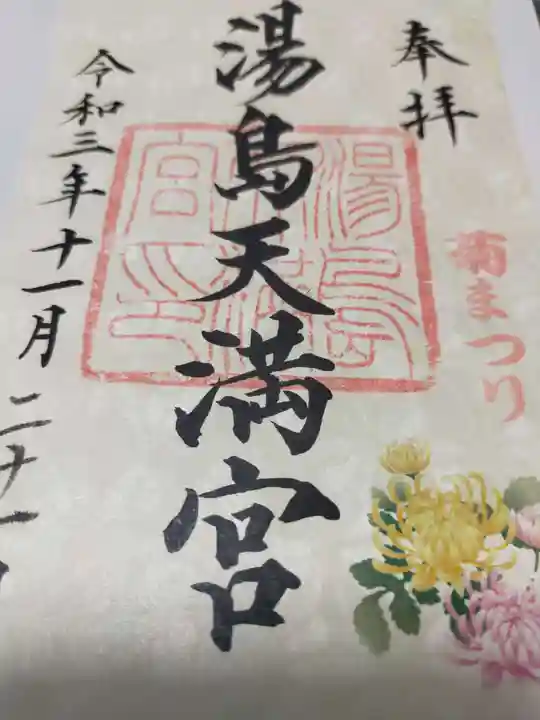 奉拝
菊まつり
湯島天満宮
令和三年十一月二十一日